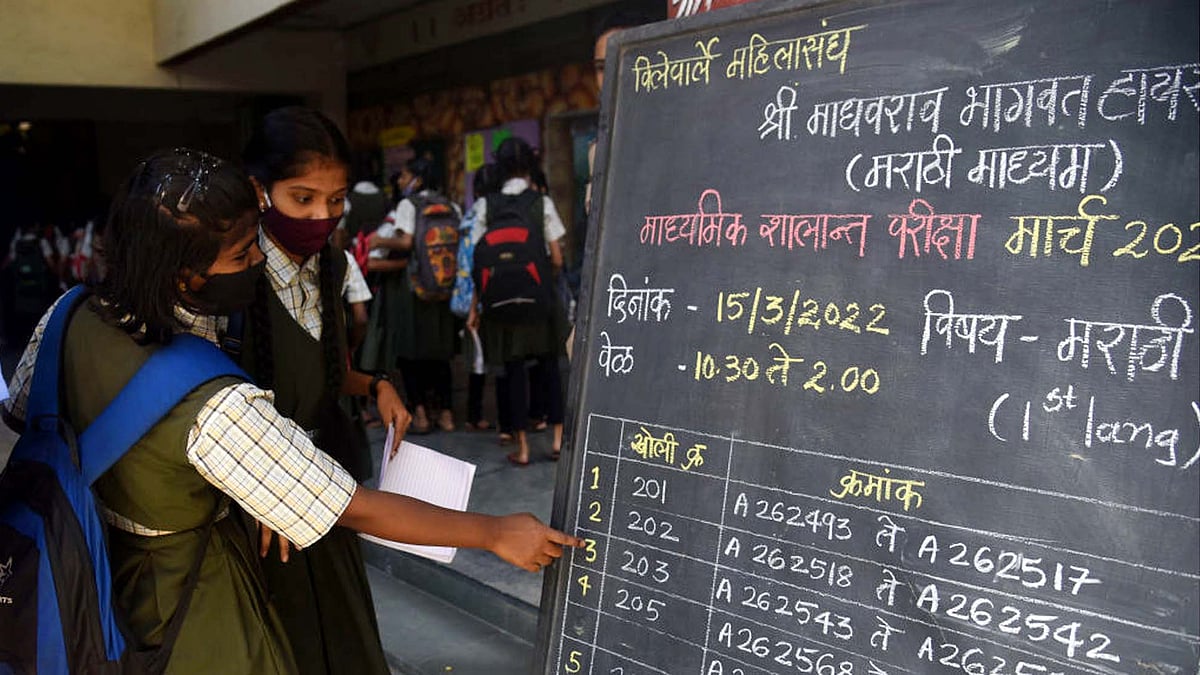 विलेपार्ले महिलासंघ
श्री. माधवराव भागवत
(मराठी माध्यम)
माध्यमिक शालान्त परीक्षा मार्च
दिनांक - 15/3/2022 विषय - मराठी
वेळ - 10.30 ते 2.00 (1st lang)
खोली क्र क्रमांक
1 201 A 262493 ते A262517
2 202 A 262518 ते A262542
3 203 A 262543 ते
4 205 A262568
5